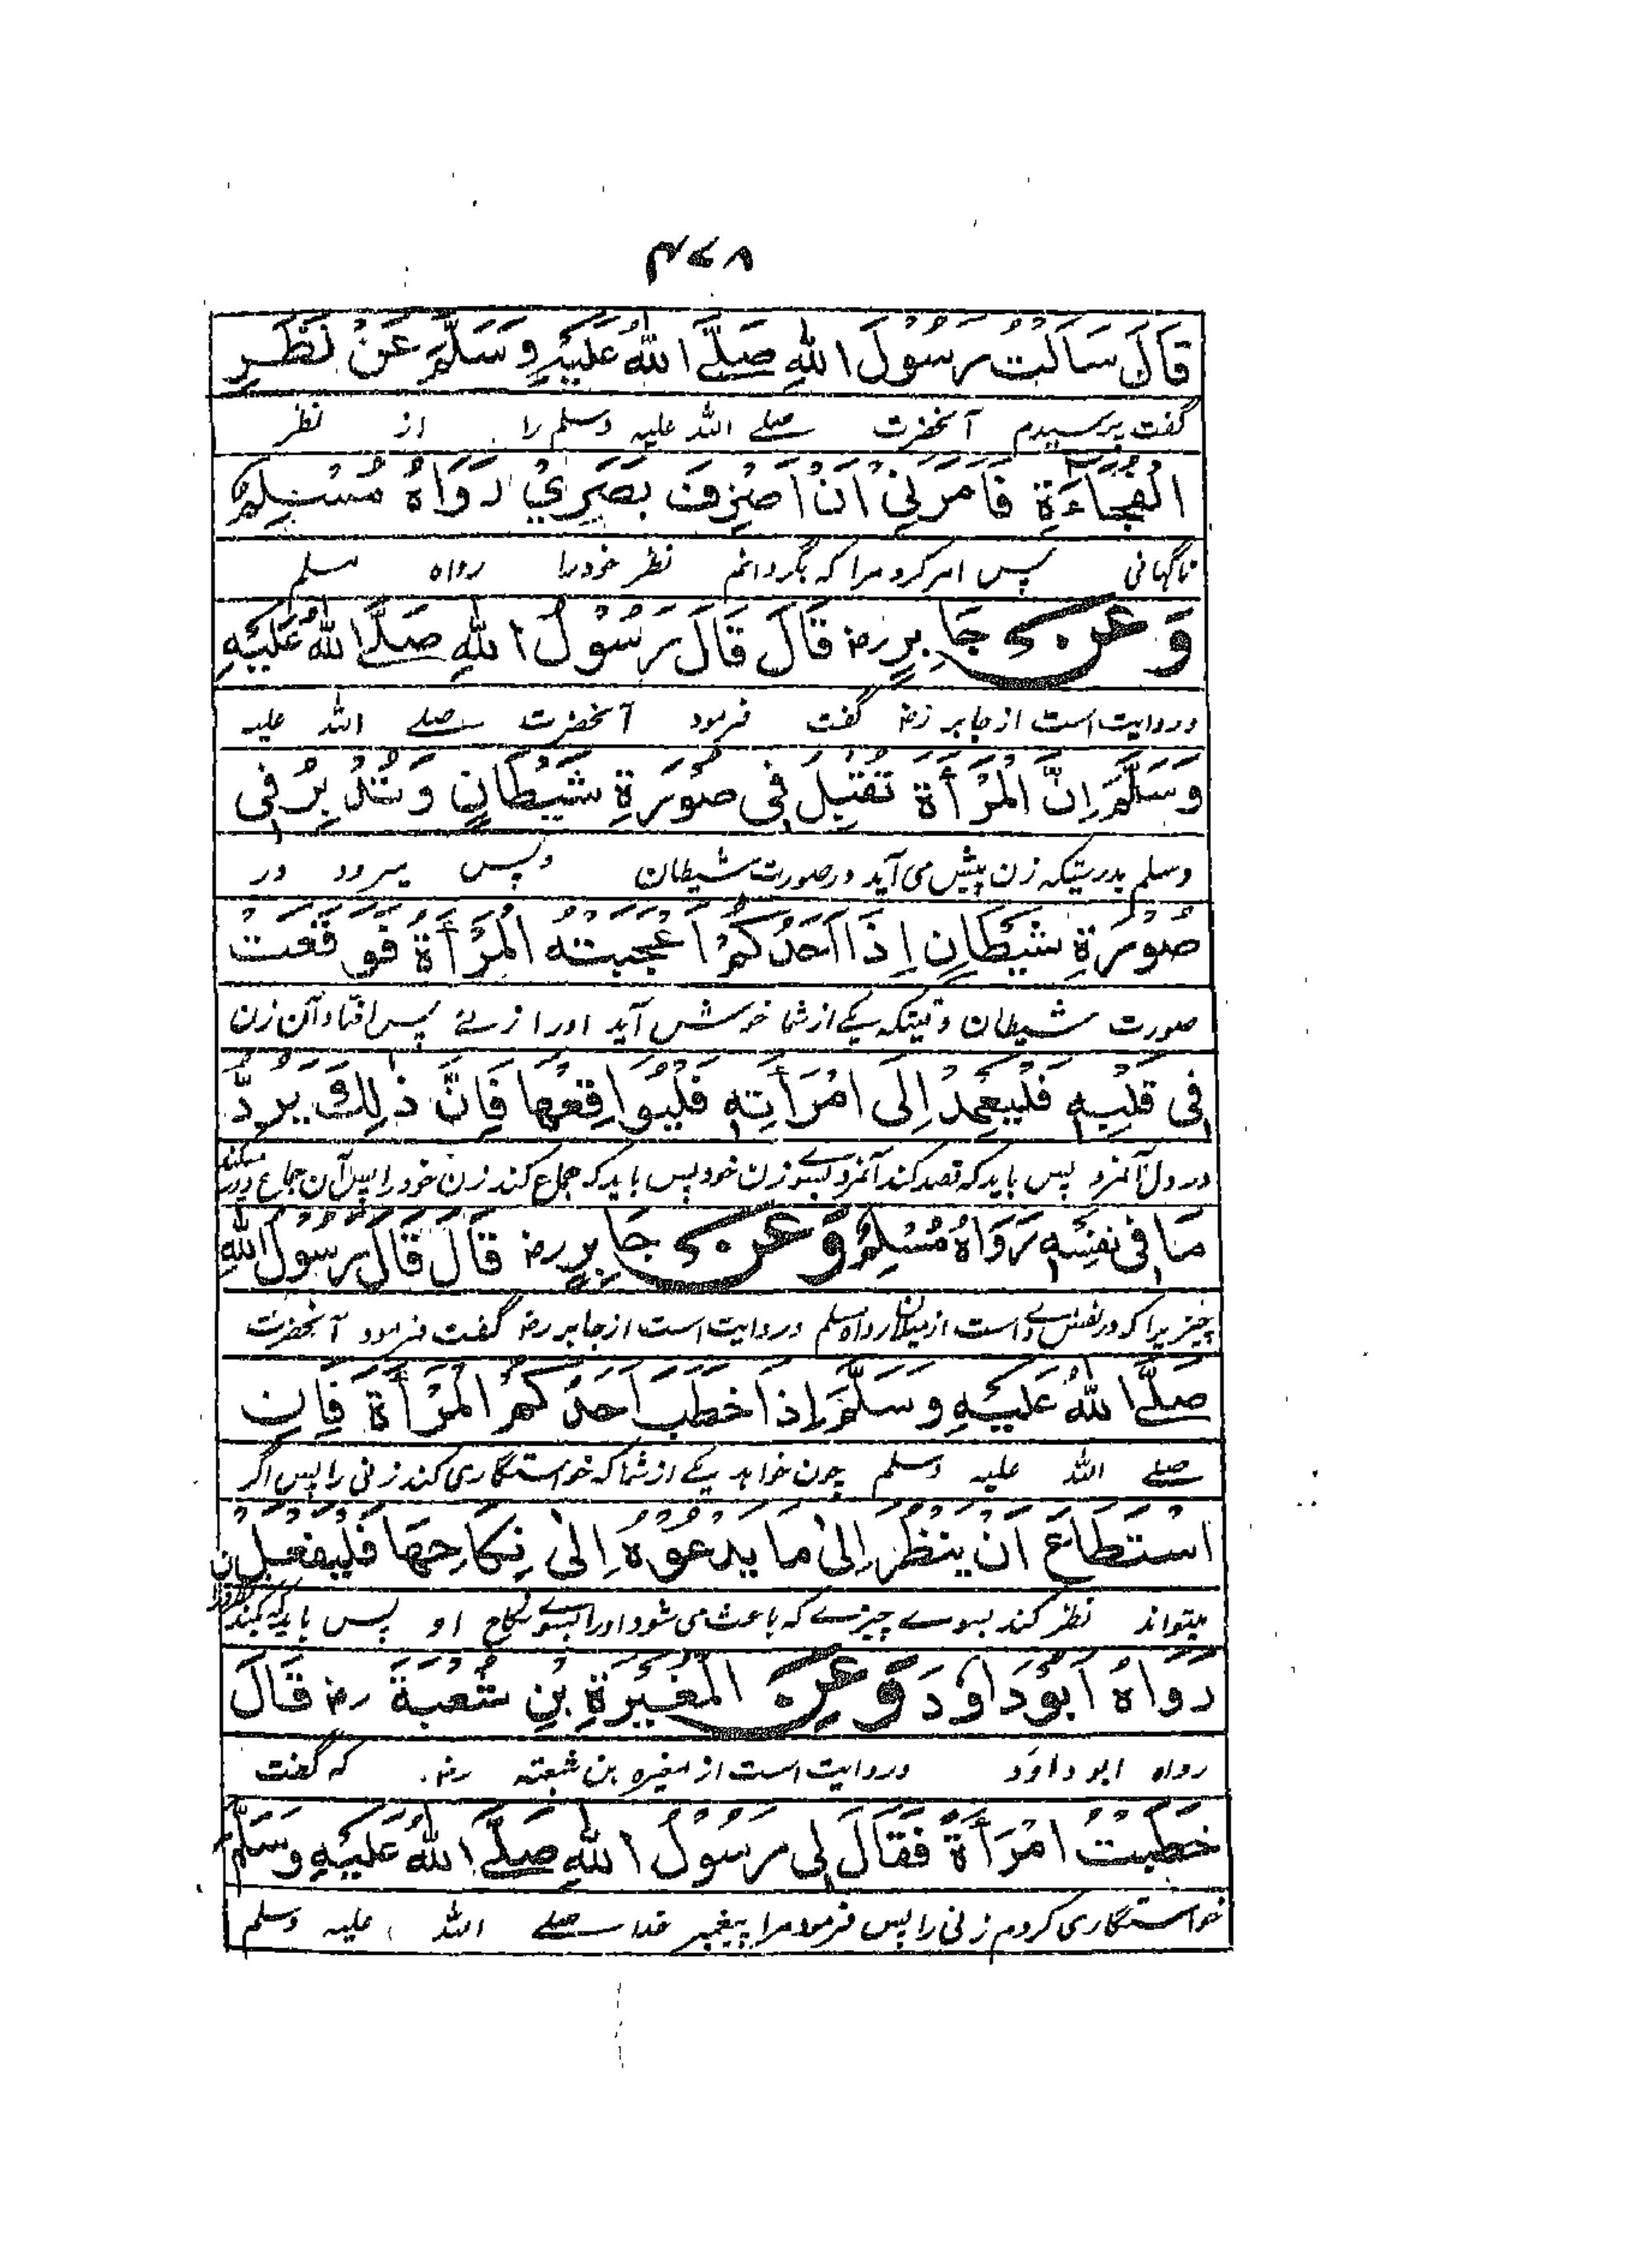 ۴۷۸
قَالَ سَاَلْتُ رَسُوْلَ اللهِ صَلَّے اللهُ عَلَيْهِ وَسَلَّمَ عَنْ نَظَرِ
گفت پرسیدم آنحضرت صلے الله علیه وسلم را از نظر
الْفُجَاءَةِ فَاَمَرَنِىْ اَنْ اَصْرِفَ بَصَرِىْ رَوَاهُ مُسْلِمٌ
ناگهانی پس امر کرد مرا که بگردانم نظر خود را رواه مسلم
وَعَنْ جَابِرٍ رضـ قَالَ قَالَ رَسُوْلُ اللهِ صَلَّے اللهُ عَلَيْهِ
و روایت است از جابر رضـ گفت فرمود آنحضرت صلے الله علیه
وَسَلَّمَ اِنَّ الْمَرْأَةَ تُقْبِلُ فِى صُوْرَةِ شَيْطَانٍ وَتُدْبِرُ فِى
وسلم بدرستیکه زن پیش می آید در صورت شیطان و پس میرود در
صُوْرَةِ شَيْطَانٍ اِذَا اَحَدُكُمْ اَعْجَبَتْهُ الْمَرْأَةُ فَوَقَعَتْ
صورت شیطان وقتیکه یکے از شما خوش آید او را زنے پس افتاد آن زن
فِى قَلْبِهٖ فَلْيَعْمِدْ اِلَى امْرَأَتِهٖ فَلْيُوَاقِعْهَا فَاِنَّ ذٰلِكَ يَرُدُّ
در دل آنمرد پس باید که قصد کند آنمرد بسوے زن خود پس باید که جماع کند زن خود را پس آن جماع دور میکند
مَا فِى نَفْسِهٖ رَوَاهُ مُسْلِمٌ وَعَنْ جَابِرٍ رضـ قَالَ قَالَ رَسُوْلُ اللهِ
چیزیرا که در نفس وے است از میلان رواه مسلم و روایت است از جابر رضـ گفت فرمود آنحضرت
صَلَّے اللهُ عَلَيْهِ وَسَلَّمَ اِذَا خَطَبَ اَحَدُكُمُ الْمَرْأَةَ فَاِنِ
صلے الله علیه وسلم چون خواهد یکے از شما که خواستگاری کند زنی را پس اگر
اسْتَطَاعَ اَنْ يَنْظُرَ اِلٰى مَا يَدْعُوْهُ اِلٰى نِكَاحِهَا فَلْيَفْعَلْ
میتواند نظر کند بسوے چیزے که باعث می شود او را بسوے نکاح او پس باید که بکند
رَوَاهُ اَبُوْ دَاوٗدَ وَعَنِ الْمُغِيْرَةِ بْنِ شُعْبَةَ رضـ قَالَ
رواه ابو داوَد و روایت است از مغیره بن شعبته رضـ که گفت
خَطَبْتُ امْرَأَةً فَقَالَ لِى رَسُوْلُ اللهِ صَلَّے اللهُ عَلَيْهِ وَسَلَّمَ
خواستگاری کردم زنی را پس فرمود مرا پیغمبر خدا صلے الله علیه وسلم